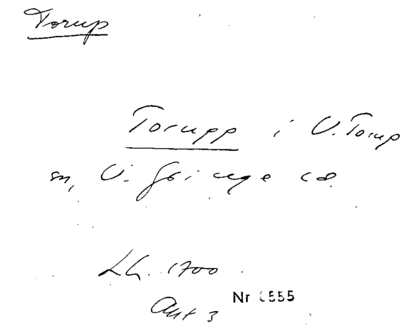 Torup
Torupp i V. Torup
sn, V. Göinge hd.
Lh. 1700
Akt 3 Nr 6555